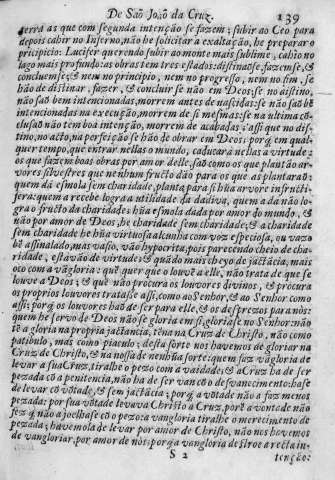 De Saõ Joaõ da Cruz. 139
terra as que com segunda intenção se fazem; subir ao Ceo para
depois cahir no Inferno, não he solicitar a exaltação, he preparar o
pricipicio: Lucifer querendo subir ao monte mais sublime, cahio no
lago mais profundo: as obras tem tres estados: distinaõse, fazemse, &
concluemse; & nem no principio, nem no progresso, nem no fim, se
hão de distinar, fazer, & concluir se não em Deos; se no distino,
não saõ bem intencionadas, morrem antes de nascidas: se não saõ bẽ
intencionadas na execução, morrem de si mesmas: se na ultima cõ-
clusaõ não tem boa intenção, morrem de acabadas; assi que no dis-
tino, no acto, na perfeição se hão de obrar em Deos: porq̃ em qual-
quer tempo, que entrar nellas o mundo, caducará nellas a virtude:
os que fazem boas obras por amor delle, saõ como os que plantão ar-
vores silvestres que nenhum fructo dão para os que as plantaraõ:
quem dá esmola sem charidade, planta para si hũa arvore infructi-
fera: quem a recebe logra a utilidade da dadiva, quem a dá não lo-
gra o fructo da charidade: hũa esmola dada por amor do mundo, &
não por amor de Deos, he charidade sem charidade; & a charidade
sem charidade he hũa virtuosa calumnia com voz especiosa, ou vazo
bẽ assinalado, mas vasio, vão hypocrita, pois parecendo cheio de cha-
ridade, està vão de virtude: & quãdo mais cheyo de jactãcia, mais
oco com a vãgloria: quẽ quer que o louvẽ a elle, não trata de que se
louve a Deos; & quẽ não procura os louvores divinos, & procura
os proprios louvores tratase assi, como ao Senhor, & ao Senhor como
assi: porq̃ os louvores haõ de ser para elle, & os desprezos para nòs:
quem he servo de Deos não se gloria em si, gloriase no Senhor: não
tẽ a gloria na propria jactãncia, tẽna na Cruz de Christo, não como
patibulo, mas como piaculo; desta sorte nos havemos de gloriar na
Cruz de Christo, & na nossa de nenhua sorte: quem faz vãgloria de
levar a sua Cruz, tiralhe o pezo com a vaidade: & a Cruz ha de ser
pezada cõ a penitencia, não ha de ser vã com o desvanecimento: hase
de levar cõ võtade, & sem jactãcia; porq̃ a võtade não a faz menos
pezada: por sua võtade levava Christo a Cruz, porẽ a võtade não
fez q̃ não ajoelhase cõ o pezo: a vangloria tiralhe o merecimento de
pezada; havemola de levar por amor de Christo, não nos havemos
de vangloriar, por amor de nòs: porq̃ a vangloria destroe a recta in-
S 2
tenção: